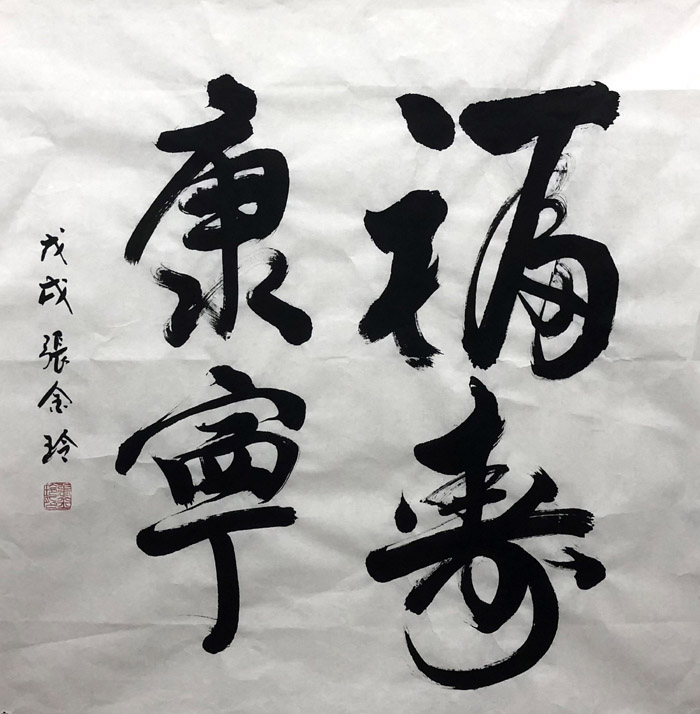 福寿
康寧
戊戌張金玲